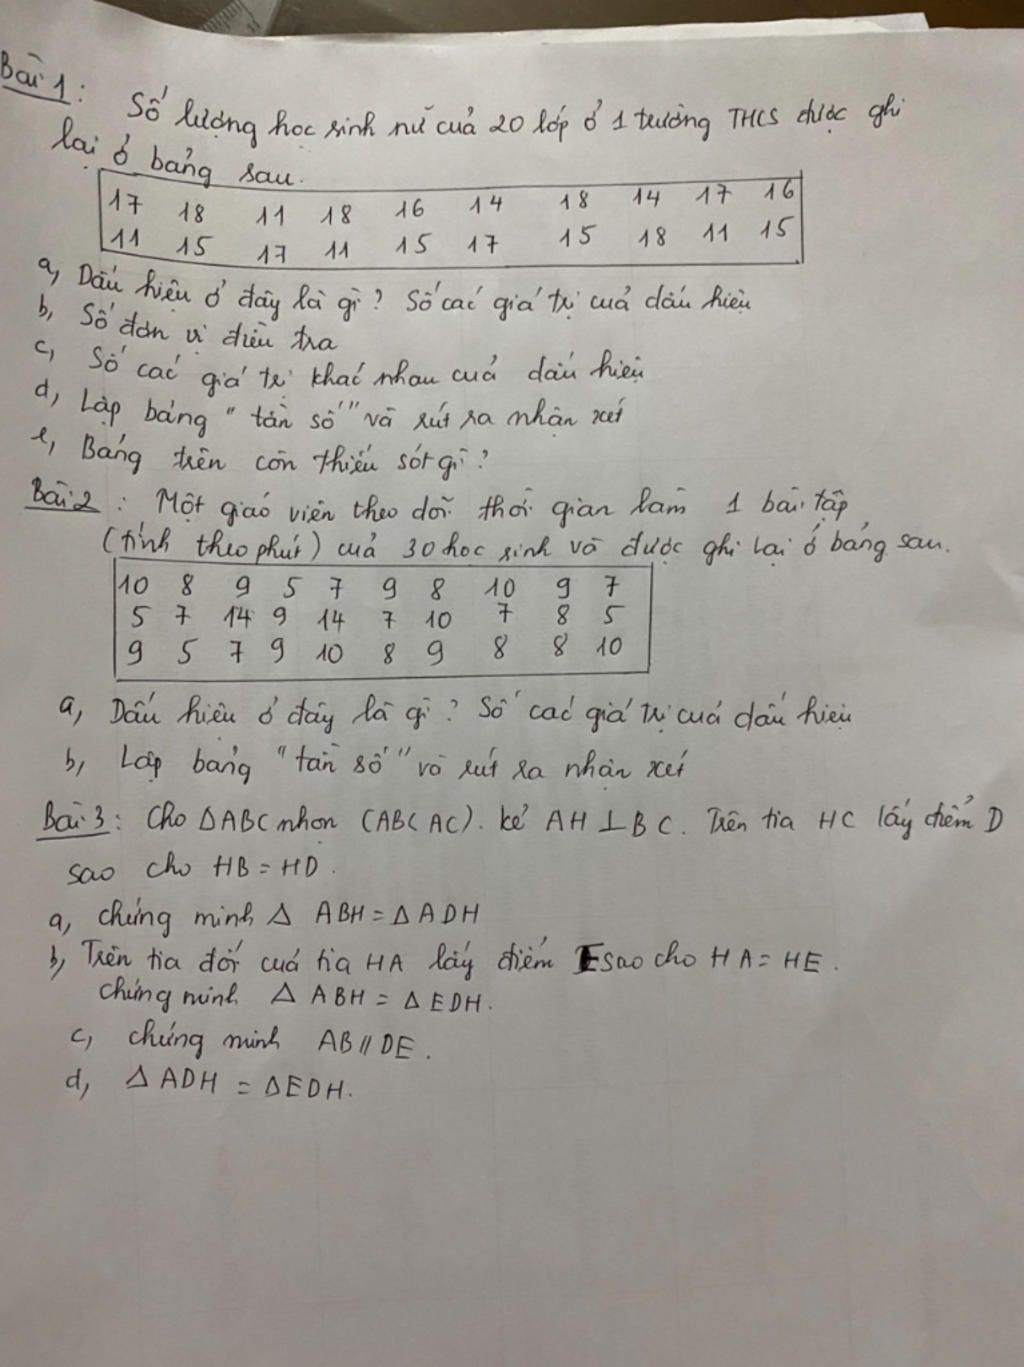 Bài 1: Số lượng học sinh nữ của 20 lớp ở 1 trường THCS được ghi
lại ở bảng sau.
17 18 11 18 16 14 18 14 17 16
11 15 17 11 15 17 15 18 11 15
a, Dấu hiệu ở đây là gì? Số các giá trị của dấu hiệu
b, Số đơn vị điều tra
c, Số các giá trị khác nhau của dấu hiệu
d, Lập bảng "tần số" và rút ra nhận xét
e, Bảng trên còn thiếu sót gì?
Bài 2: Một giáo viên theo dõi thời gian làm 1 bài tập
(tính theo phút) của 30 học sinh và được ghi lại ở bảng sau.
10 8 9 5 7 9 8 10 9 7
5 7 14 9 14 7 10 7 8 5
9 5 7 9 10 8 9 8 8 10
a, Dấu hiệu ở đây là gì? Số các giá trị của dấu hiệu
b, Lập bảng "tần số" và rút ra nhận xét
Bài 3: Cho ΔABC nhọn (AB< AC). kẻ AH ⊥ BC. Trên tia HC lấy điểm D
sao cho HB = HD.
a, chứng minh Δ ABH = Δ ADH
b, Trên tia đối của tia HA lấy điểm E sao cho HA = HE.
chứng minh Δ ABH = Δ EDH.
c, chứng minh AB // DE.
d, Δ ADH = Δ EDH.